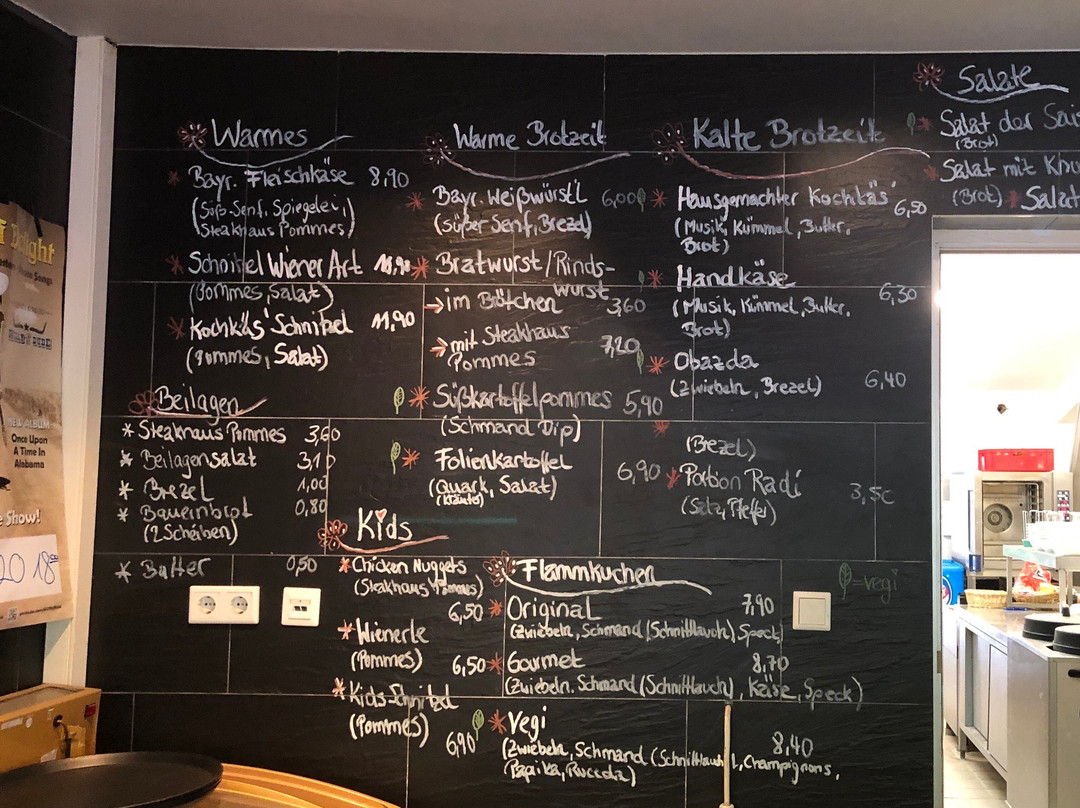 Warmes
Bayr. Fleischkäse 8,90
(Süß-Senf, Spiegelei,
Steakhaus Pommes)
Schnitzel Wiener Art
(Pommes, Salat)
Kochkäs' Schnitzel 11,90
(Pommes, Salat)
Beilagen
* Steakhaus Pommes 3,60
* Beilagensalat 3,10
* Brezel 1,00
* Bauernbrot 0,80
(2 Scheiben)
* Butter 0,50
Warme Brotzeit
Bayr. Weißwürst'l 6,00
(Süßer Senf, Brezel)
Bratwurst/Rinds-
wurst
→ im Brötchen 3,60
→ mit Steakhaus
Pommes 7,20
Süßkartoffelpommes 5,90
(Schmand Dip)
Folienkartoffel 6,90
(Quark, Salat)
(Kräuter)
Kids
Chicken Nuggets
(Steakhaus Pommes)
6,50
Wienerle
(Pommes) 6,50
Kids-Schnitzel
(Pommes)
6,90
Flammkuchen
Original 7,90
(Zwiebeln, Schmand (Schnittlauch), Speck)
Gourmet 8,70
(Zwiebeln, Schmand (Schnittlauch), Käse, Speck)
Vegi 8,40
(Zwiebeln, Schmand (Schnittlauch), Champignons,
Paprika, Ruccola)
Kalte Brotzeit
Hausgemachter Kochkäs' 6,50
(Musik, Kümmel, Butter,
Brot)
Handkäse 6,30
(Musik, Kümmel, Butter,
Brot)
Obazda
(Zwiebeln, Brezel) 6,40
(Brezel)
Portion Radi 3,50
(Salz, Pfeffer)
=vegi
Salate
Salat der Sai
(Brot)
Salat mit
(Brot) Salat
NEW ALBUM
Once Upon
A Time In
Alabama
Show!